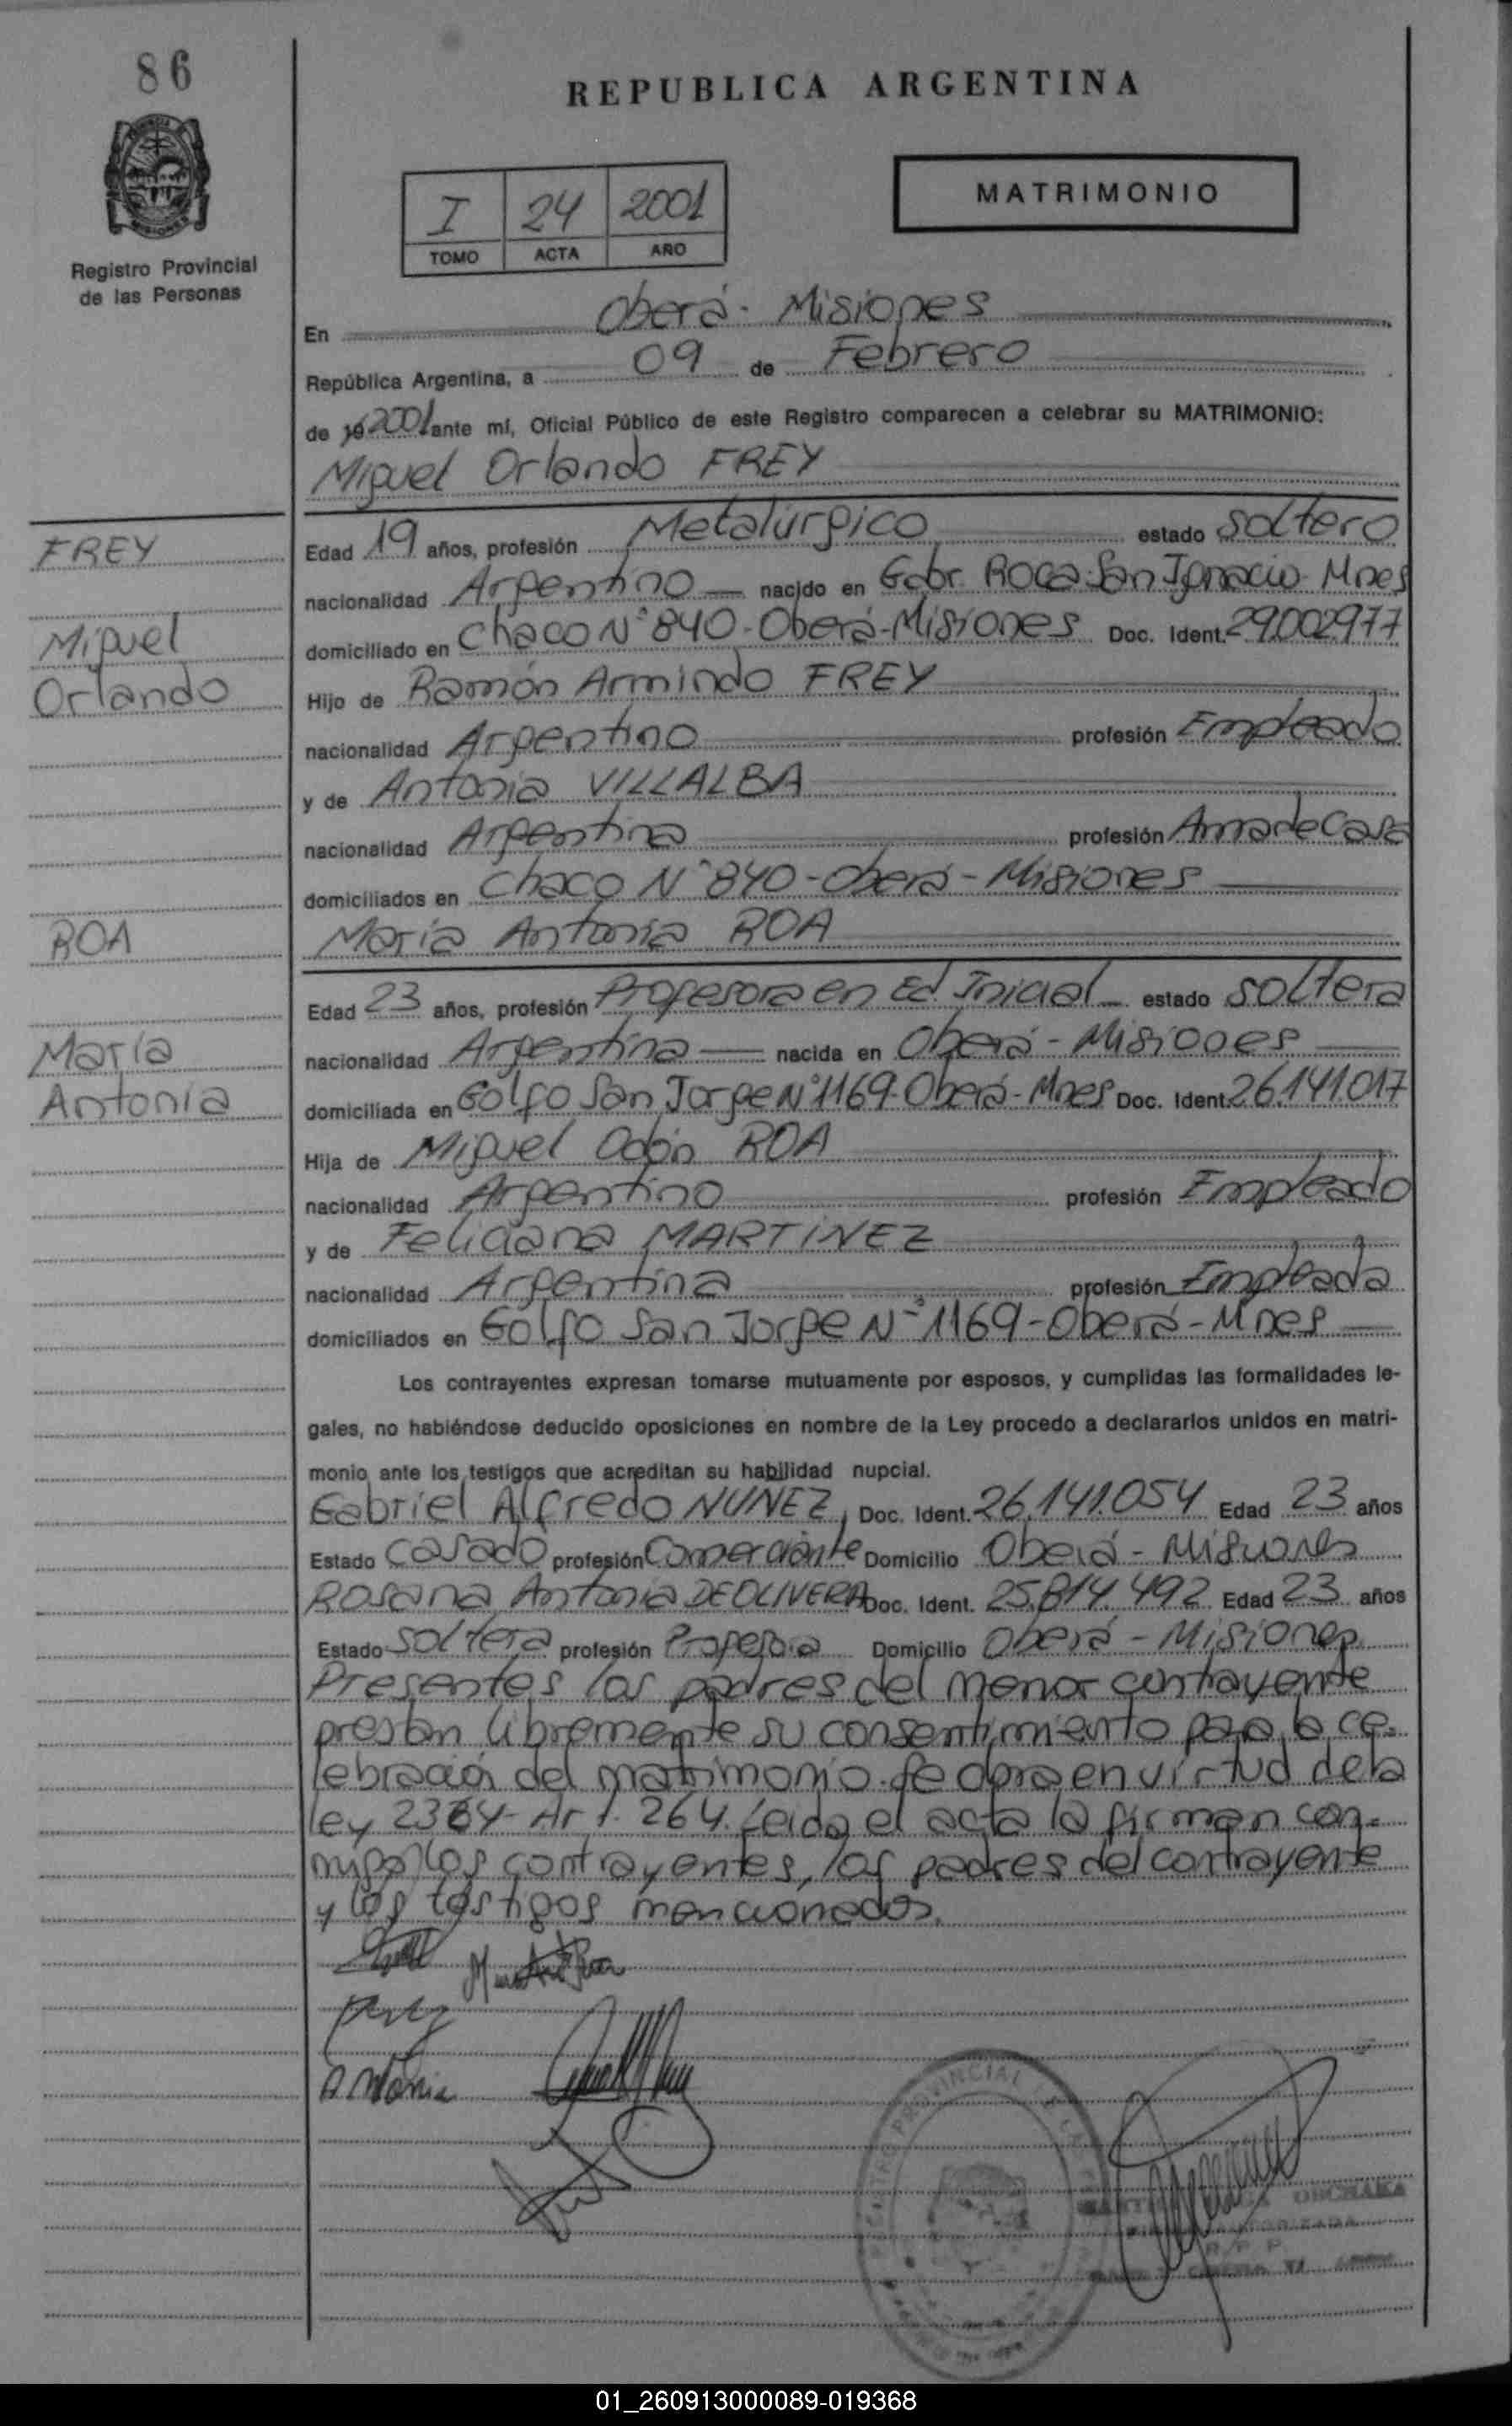 86
REPUBLICA ARGENTINA
MATRIMONIO
I 24 2001
TOMO ACTA AÑO
Registro Provincial
de las Personas
En Oberá - Misiones
República Argentina, a 09 de Febrero
de 19 2001 ante mí, Oficial Público de este Registro comparecen a celebrar su MATRIMONIO:
Miguel Orlando FREY
FREY
Miguel
Orlando
Edad 19 años, profesión Metalúrgico estado soltero
nacionalidad Argentino nacido en Gobr. Roca-San Ignacio-Mnes
domiciliado en Chaco N° 840-Oberá-Misiones Doc. Ident. 29.002.977
Hijo de Ramón Armindo FREY
nacionalidad Argentino profesión Empleado
y de Antonia VILLALBA
nacionalidad Argentina profesión Ama de Casa
domiciliados en Chaco N° 840-Oberá-Misiones
María Antonia ROA
ROA
María
Antonia
Edad 23 años, profesión Profesora en Ed. Inicial estado soltera
nacionalidad Argentina nacida en Oberá - Misiones
domiciliada en Golfo San Jorge N° 1169-Oberá-Mnes Doc. Ident. 26.141.017
Hija de Miguel Odón ROA
nacionalidad Argentino profesión Empleado
y de Feliciana MARTINEZ
nacionalidad Argentina profesión Empleada
domiciliados en Golfo San Jorge N° 1169-Oberá-Mnes
Los contrayentes expresan tomarse mutuamente por esposos, y cumplidas las formalidades le-
gales, no habiéndose deducido oposiciones en nombre de la Ley procedo a declararlos unidos en matri-
monio ante los testigos que acreditan su habilidad nupcial.
Gabriel Alfredo NUNEZ, Doc. Ident. 26.141.054 Edad 23 años
Estado Casado profesión Comerciante Domicilio Oberá - Misiones
Rosana Antonia DEOLIVERA Doc. Ident. 25.814.492 Edad 23 años
Estado soltera profesión Profesora Domicilio Oberá - Misiones
Presentes los padres del menor contrayente
prestan libremente su consentimiento para la ce-
lebración del matrimonio. Se obra en virtud de la
ley 2364- Art. 264. Leida el acta la firman con-
migo los contrayentes, los padres del contrayente
y los testigos mencionados.
Antonia
01_260913000089-019368